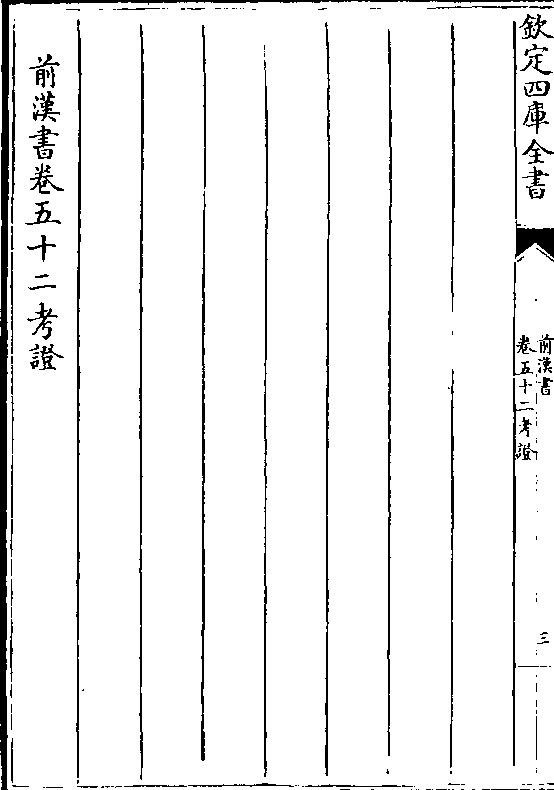 欽定四庫全書
前漢書
卷五十二考證
三
前漢書卷五十二考證